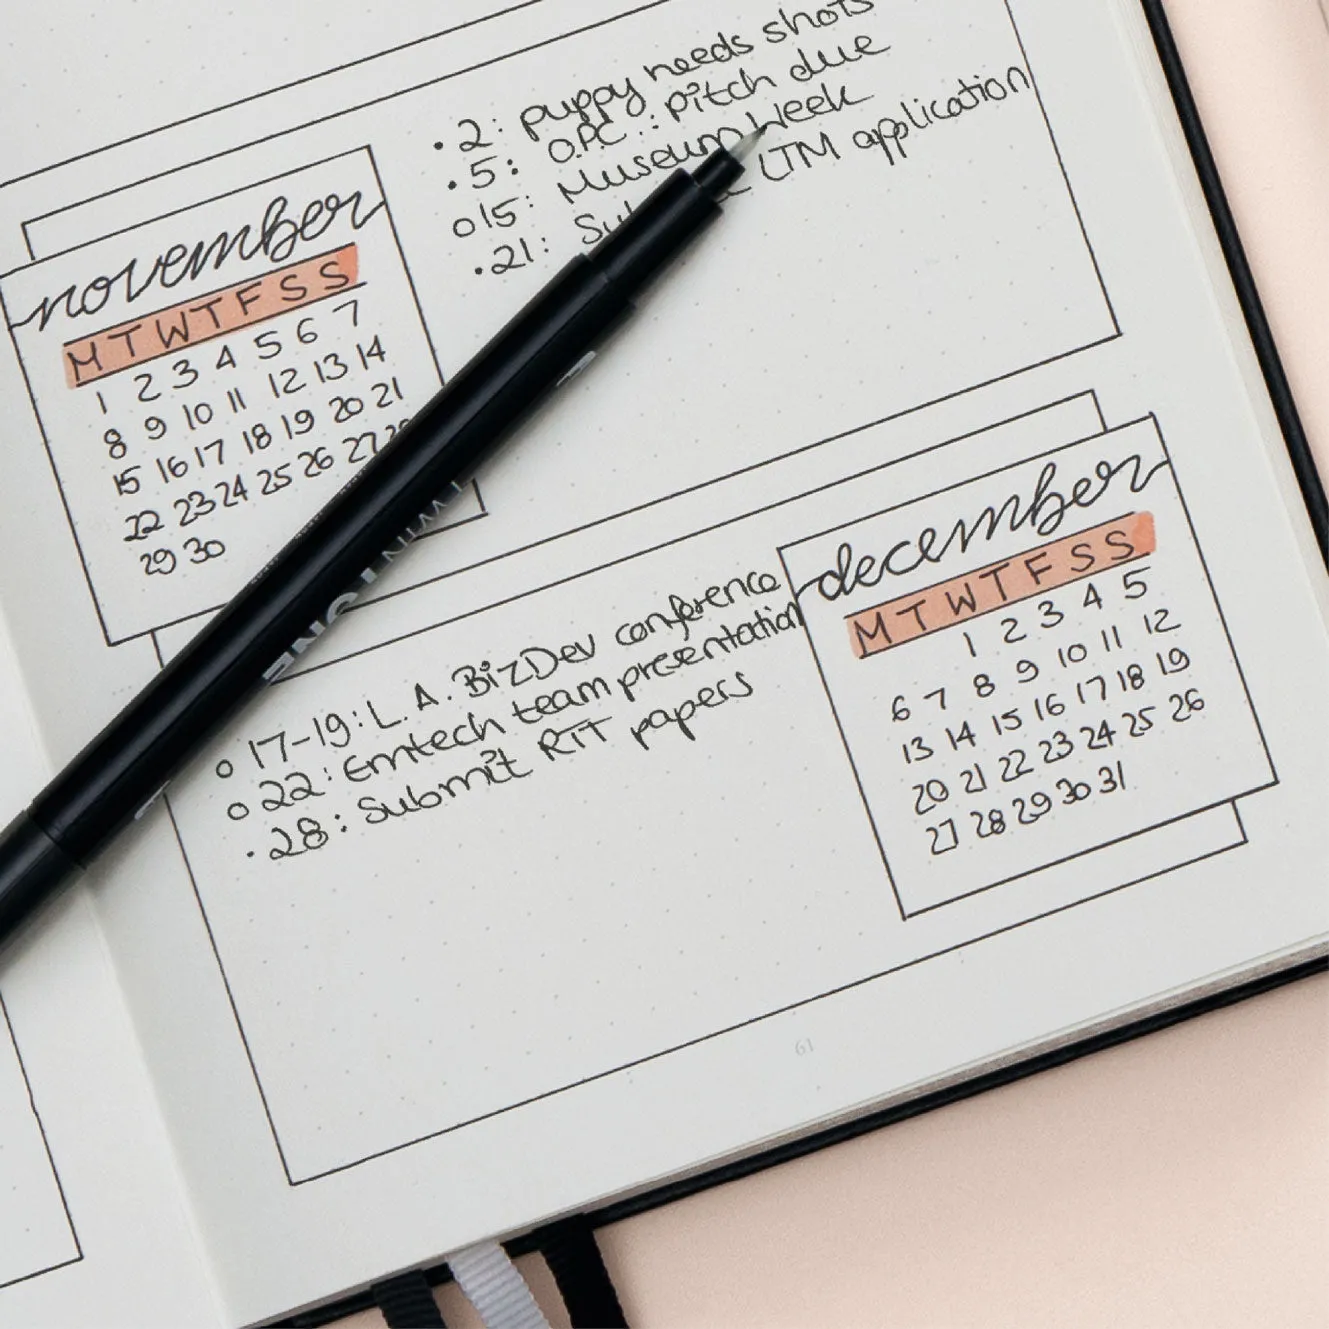 · 2: puppy needs shots
· 5: O.P.C.: pitch due
o 15: Museum Week
· 21: LTM application
november
M T W T F S S
1 2 3 4 5 6 7
8 9 10 11 12 13 14
15 16 17 18 19 20 21
22 23 24 25 26 27 28
29 30
december
M T W T F S S
1 2 3 4 5
6 7 8 9 10 11 12
13 14 15 16 17 18 19
20 21 22 23 24 25 26
27 28 29 30 31
o 17-19: L.A. BizDev conference
o 22: Emtech team presentation
· 28: Submit RIT papers
TWIN
61